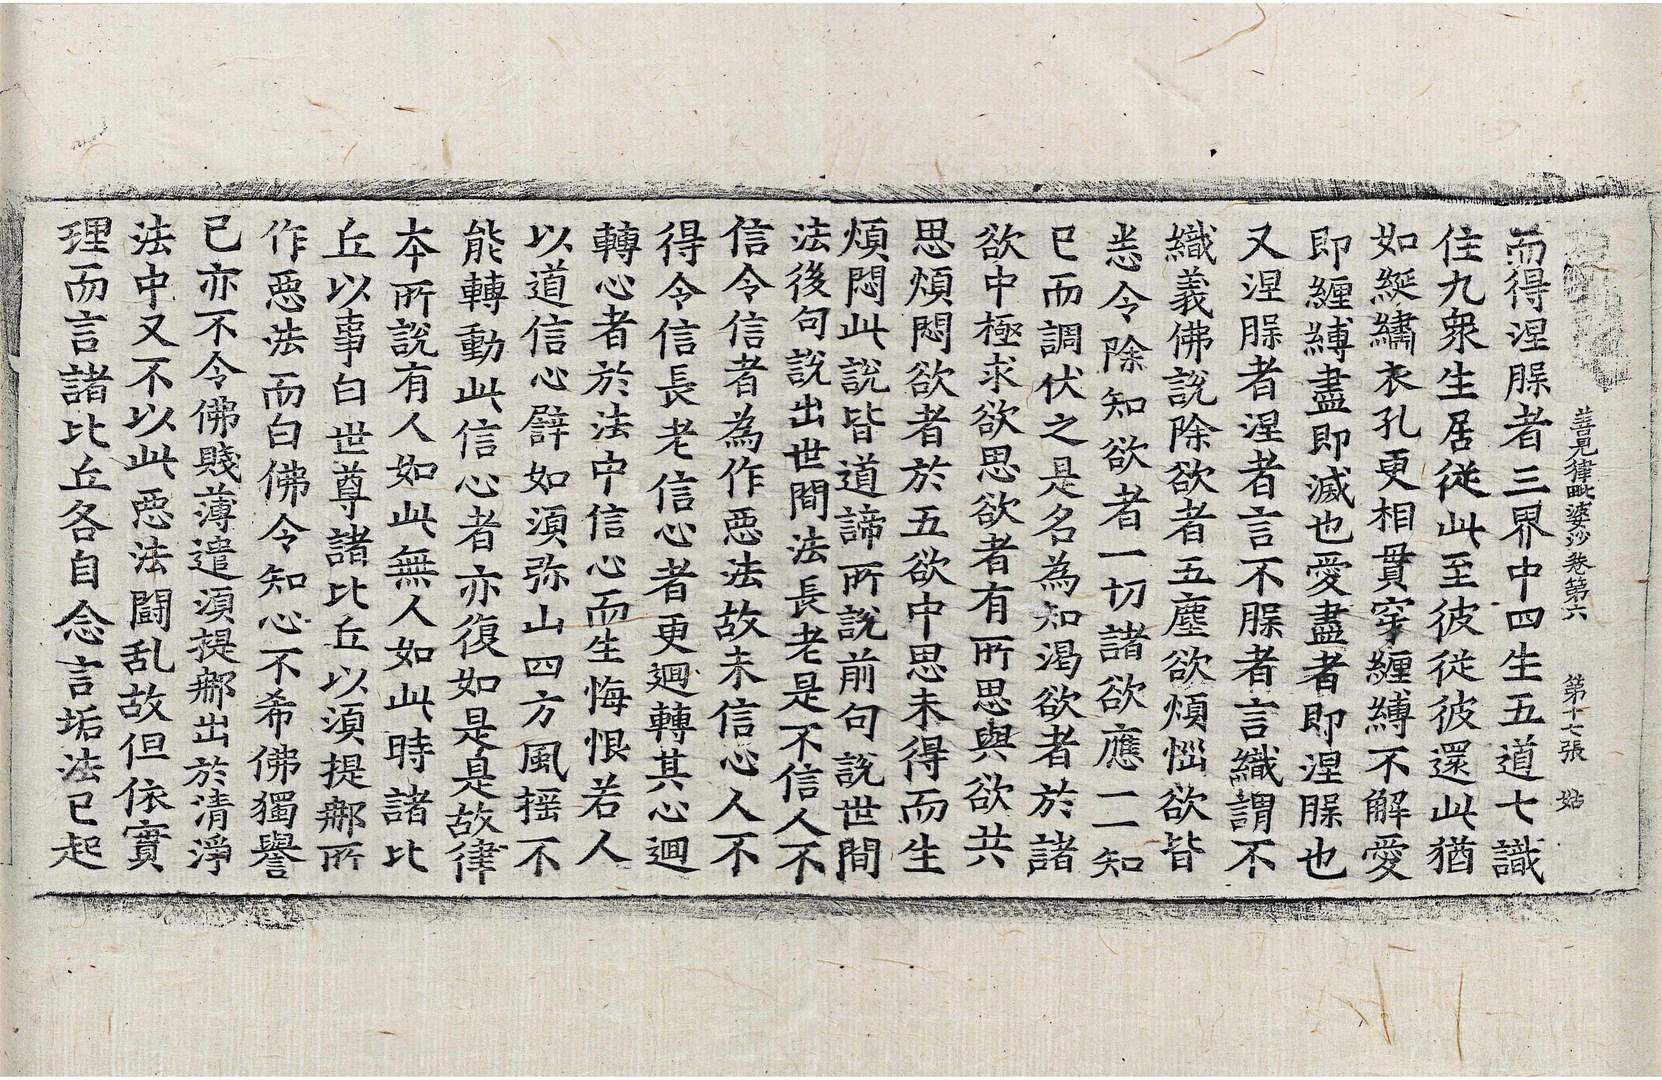 善見律毗婆沙卷第六 第十七張 姑
而得涅腂者三界中四生五道七識
住九衆生居從此至彼從彼還此猶
如綖繡衣孔更相貫穿纏縛不解愛
即纏縛盡即滅也愛盡者即涅腂也
又涅腂者涅者言不腂者言織謂不
織義佛說除欲者五塵欲煩惱欲皆
恙令除知欲者一切諸欲應一一知
已而調伏之是名為知渴欲者於諸
欲中極求欲思欲者有所思與欲共
思煩悶欲者於五欲中思未得而生
煩悶此說皆道諦所說前句說世間
法後句說出世間法長老是不信人不
信令信者為作惡法故未信心人不
得令信長老信心者更迴轉其心迴
轉心者於法中信心而生悔恨若人
以道信心譬如須弥山四方風摇不
能轉動此信心者亦復如是是故律
本所說有人如此無人如此時諸比
丘以事白世尊諸比丘以須提𨚗所
作惡法而白佛令知心不希佛獨譽
已亦不令佛賤薄遣須提𨚗出於清淨
法中又不以此惡法鬪乱故但依實
理而言諸比丘各自念言垢法已起